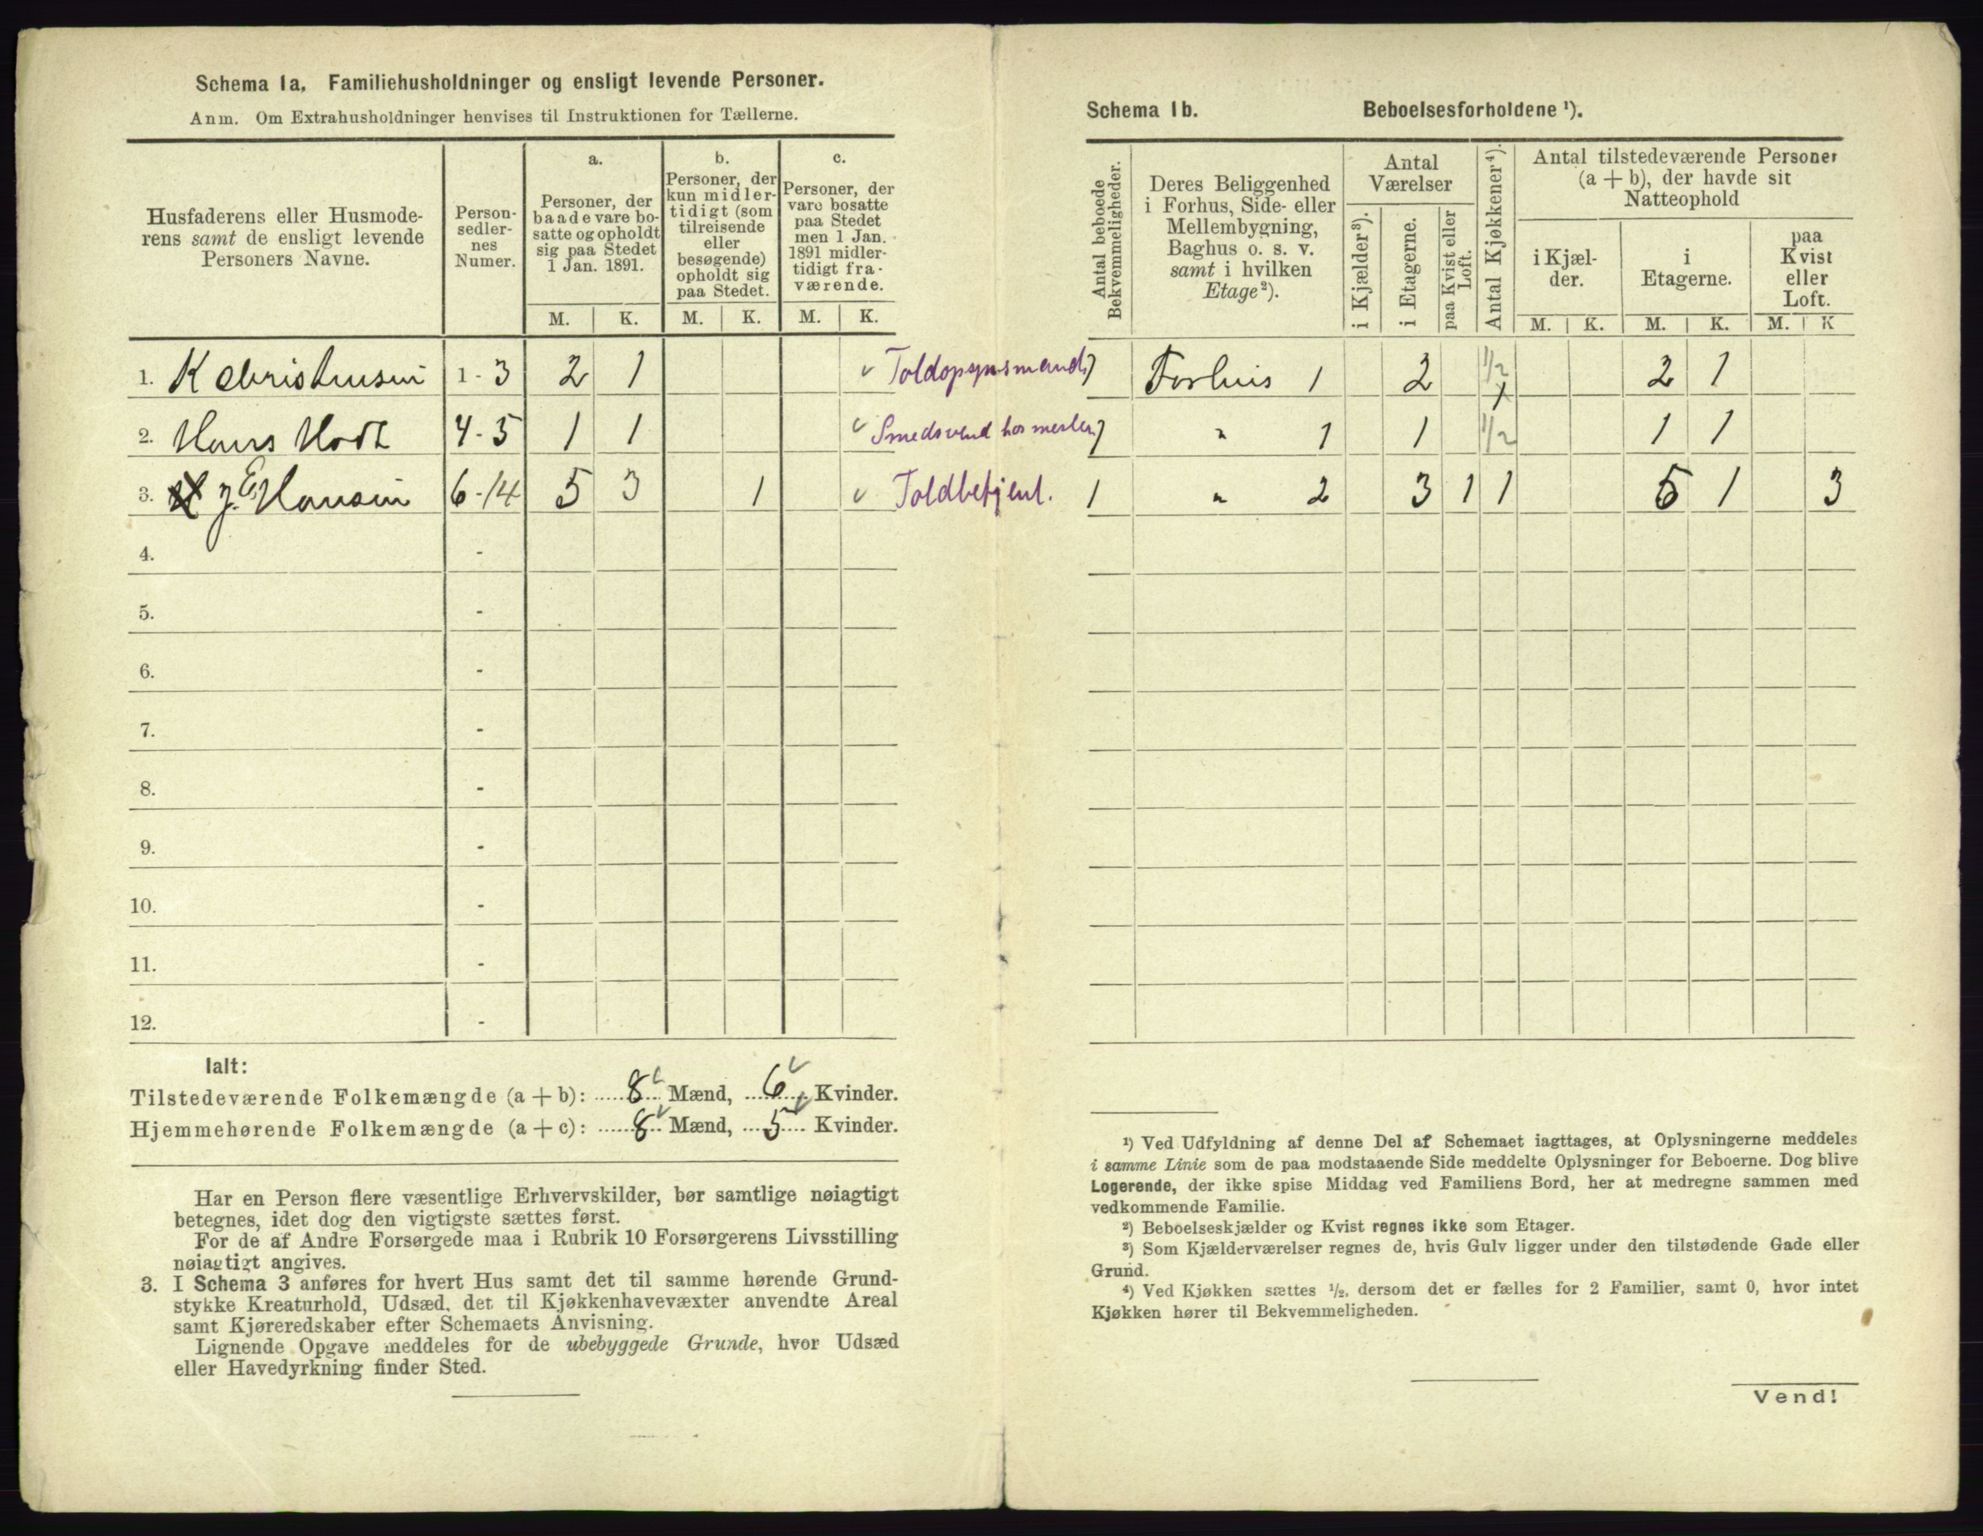 Schema 1a. Familiehusholdninger og ensligt levende Personer.
Anm. Om Extrahusholdninger henvises til Instruktionen for Tællerne.
Husfaderens eller Husmode-
rens samt de ensligt levende
Personers Navne.
Person-
sedler-
nes
Numer.
a.
Personer, der
baade vare bo-
satte og opholdt
sig paa Stedet
1 Jan. 1891.
b.
Personer, der
kun midler-
tidigt (som
tilreisende
eller
besøgende)
opholdt sig
paa Stedet.
c.
Personer, der
vare bosatte
paa Stedet
men 1 Jan.
1891 midler-
tidigt fra-
værende.
M. K. M. K. M. K.
1. K Christensen 1 - 3 2 1 Toldopsynsmand
2. Hans Hodt 4 - 5 1 1 Smedsvend hos mester
3. J. E. Hansen 6 - 14 5 3 1 Toldbetjent.
4. -
5. -
6. -
7. -
8. -
9. -
10. -
11. -
12. -
Ialt:
Tilstedeværende Folkemængde (a + b): 8 Mænd, 6 Kvinder.
Hjemmehørende Folkemængde (a + c): 8 Mænd, 5 Kvinder.
Har en Person flere væsentlige Erhvervskilder, bør samtlige nøiagtigt
betegnes, idet dog den vigtigste sættes først.
For de af Andre Forsørgede maa i Rubrik 10 Forsørgerens Livsstilling
nøiagtigt angives.
3. I Schema 3 anføres for hvert Hus samt det til samme hørende Grund-
stykke Kreaturhold, Udsæd, det til Kjøkkenhavevæxter anvendte Areal
samt Kjøreredskaber efter Schemaets Anvisning.
Lignende Opgave meddeles for de ubebyggede Grunde, hvor Udsæd
eller Havedyrkning finder Sted.
Schema 1b. Beboelsesforholdene ¹).
Antal beboede
Bekvemmeligheder.
Deres Beliggenhed
i Forhus, Side- eller
Mellembygning,
Baghus o. s. v.
samt i hvilken
Etage ²).
Antal
Værelser
i Kjælder ³).
i Etagerne.
paa Kvist eller
Loft.
Antal Kjøkkener ⁴).
Antal tilstedeværende Personer
(a + b), der havde sit
Natteophold
i Kjæl-
der.
i
Etagerne.
paa
Kvist
eller
Loft.
M. K. M. K. M. K
1 Forhus 1 2 1/2 2 1
1 " 1 1 1/2 1 1
1 " 2 3 1 1 5 1 3
¹) Ved Udfyldning af denne Del af Schemaet iagttages, at Oplysningerne meddeles
i samme Linie som de paa modstaaende Side meddelte Oplysninger for Beboerne. Dog blive
Logerende, der ikke spise Middag ved Familiens Bord, her at medregne sammen med
vedkommende Familie.
²) Beboelseskjælder og Kvist regnes ikke som Etager.
³) Som Kjælderværelser regnes de, hvis Gulv ligger under den tilstødende Gade eller
Grund.
⁴) Ved Kjøkken sættes ½, dersom det er fælles for 2 Familier, samt 0, hvor intet
Kjøkken hører til Bekvemmeligheden.
Vend!